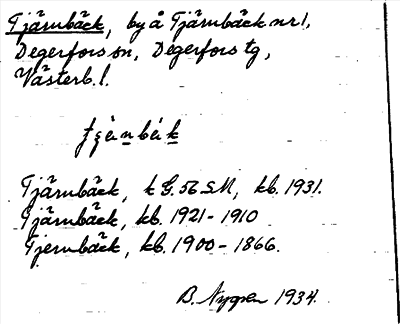 Tjärnbäck, by å Tjärnbäck nr 1,
Degerfors sn, Degerfors tg,
Västerb. l.
Tjärnbäck, k G. 56 S.M, kb. 1931.
Tjärnbäck, kb. 1921-1910
Tjernbäck, kb. 1900-1866.
B. Nygren 1934.